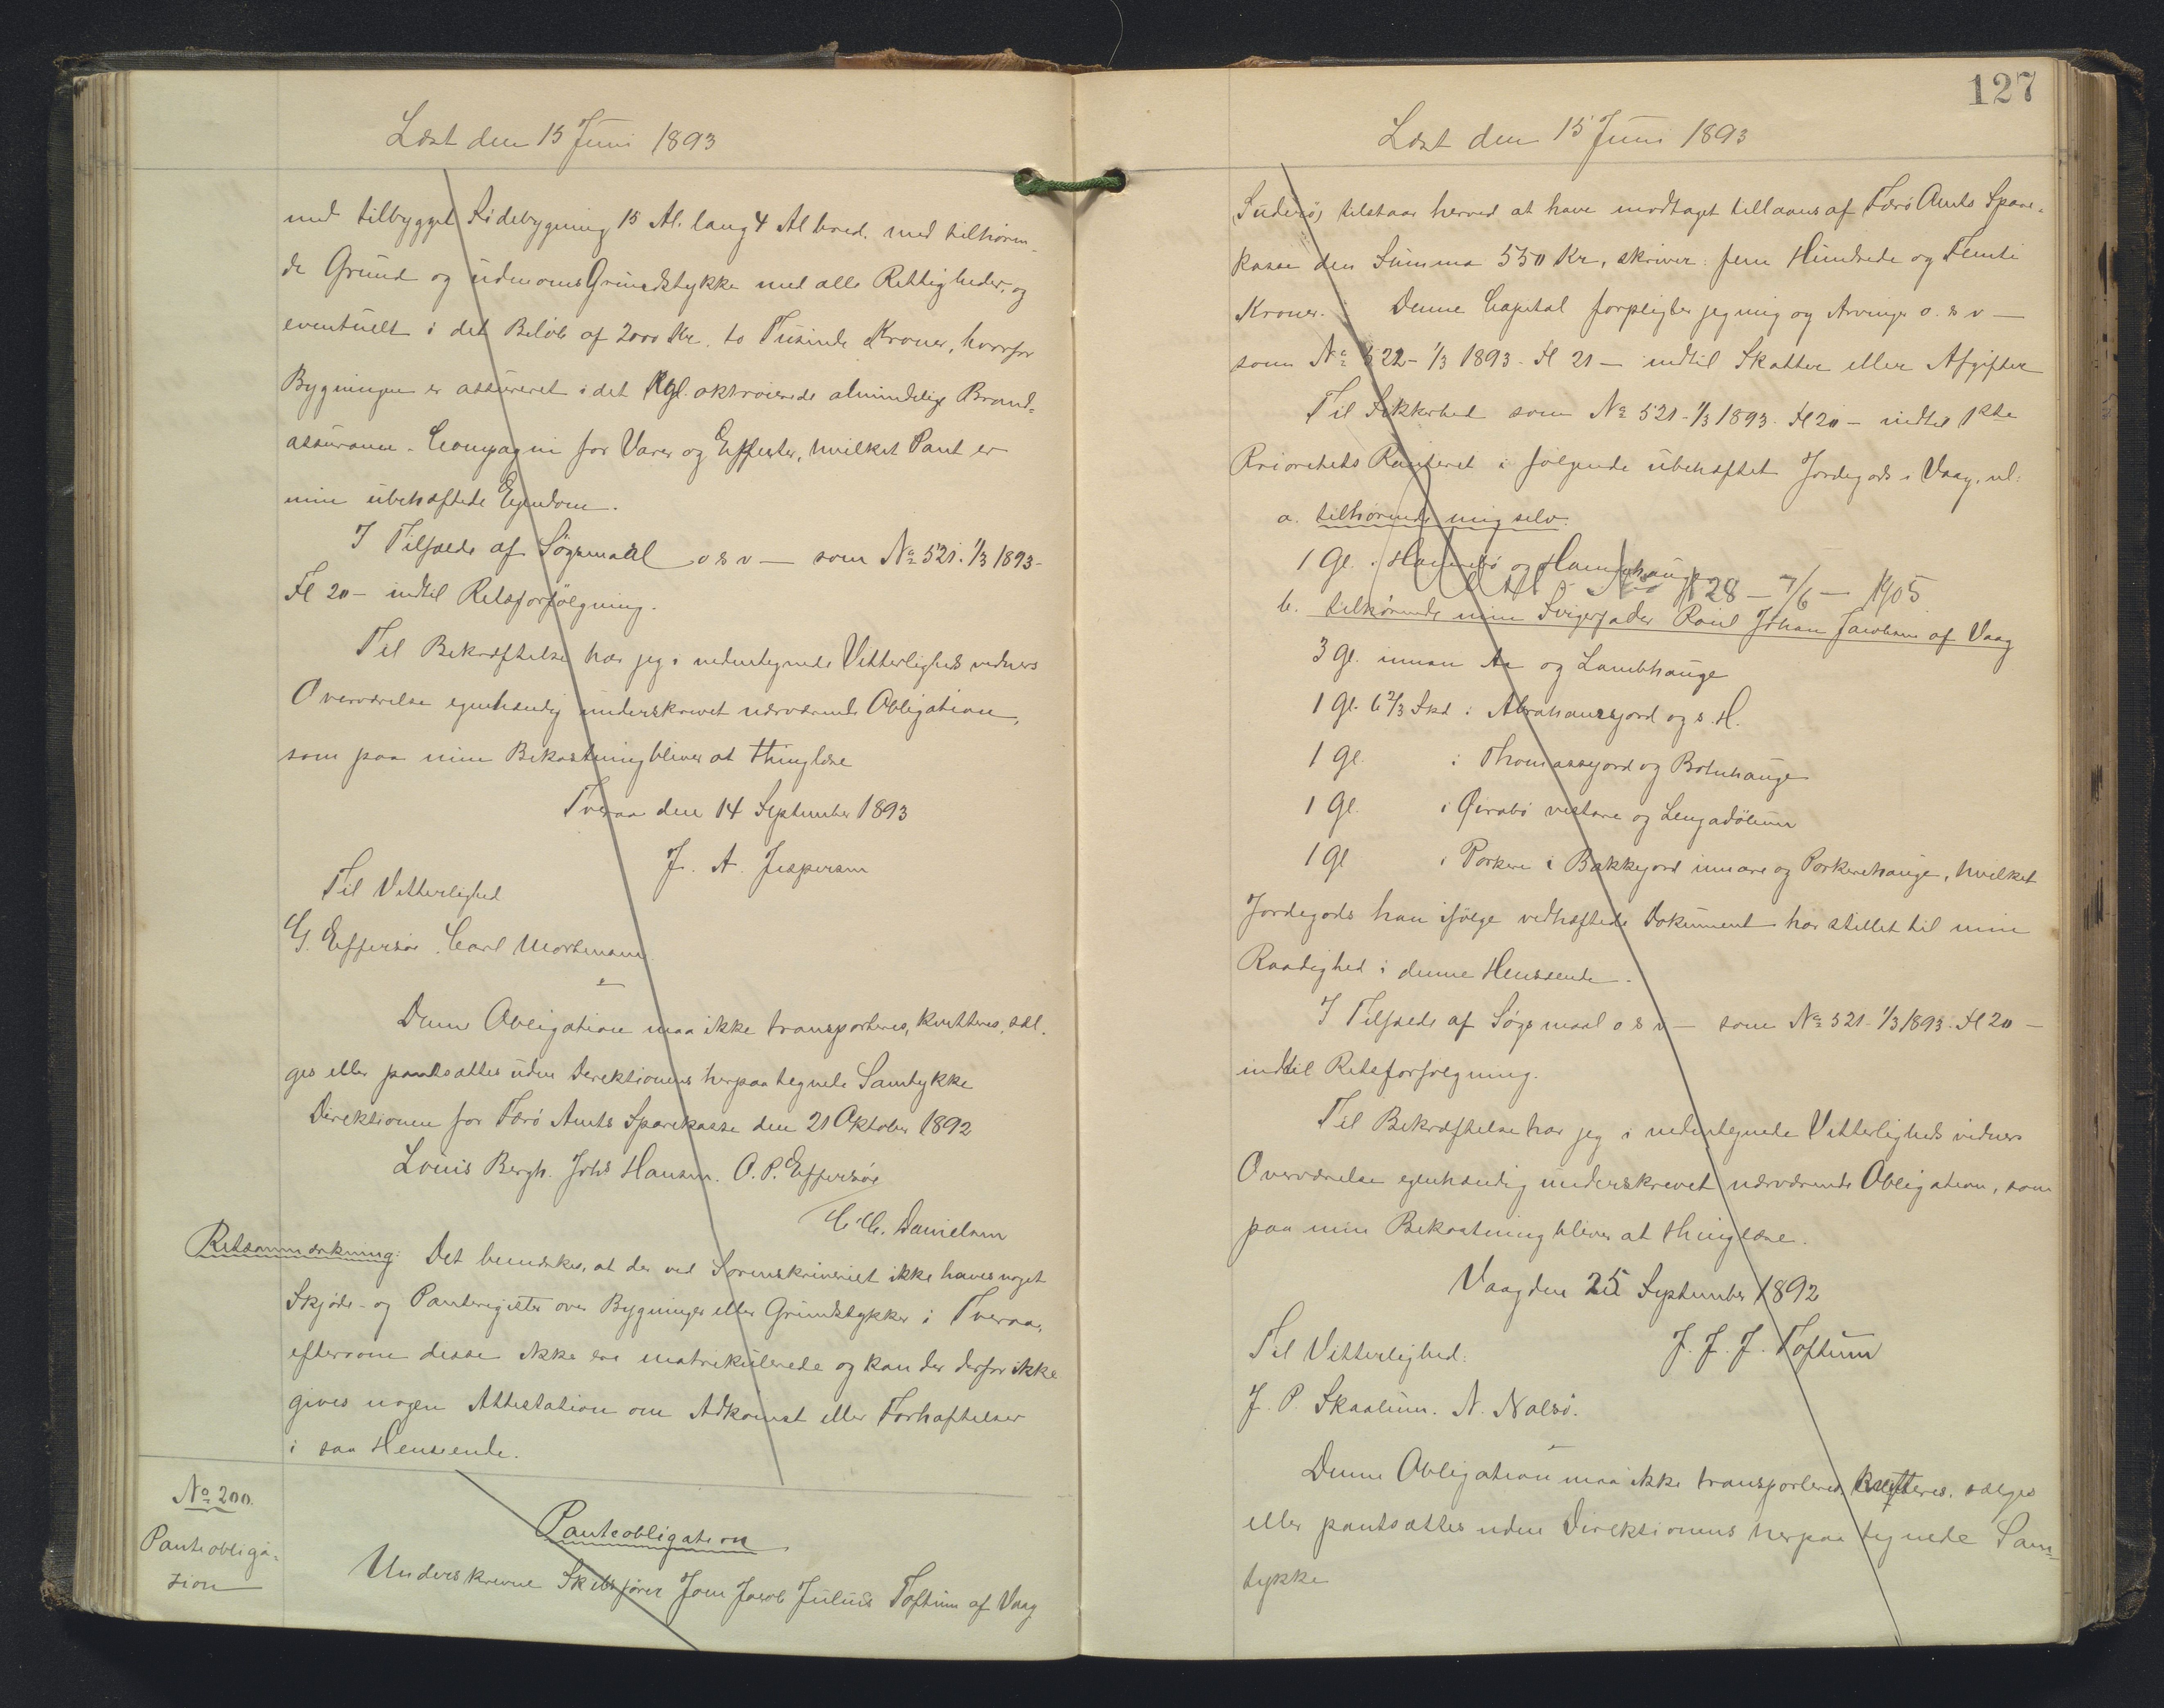 Læst den 15 Juni 1893
med tilbygget Sidebygning 15 Al. lang 4 Al bred. med tilhøren-
de Grund og udenoms Grundstykke med alle Rettigheder, og
eventuelt i det Beløb af 2000 Kr. to Tusinde Kroner, hvorfor
Bygningen er assureret i det Kgl. oktroierede almindelige Brand-
assurance-Compagni for Varer og Effecter, hvilket Pant er
min ubehæftede Ejendom.
I Tilfælde af Søgsmaal o s v — som No 521. 1/3 1893-
Fl 20 — indtil Retsforfølgning.
Til Bekræftelse har jeg i nedentegnede Vitterligheds vidners
Overværelse egenhændig underskrevet nærværende Obligation,
som paa min Bekostning bliver at thinglæse
Tveraa den 14 September 1893
J. A. Jespersen
Til Vitterlighed
G. Effersøe. Carl Mortensen
Denne Obligation maa ikke transporteres, kvitteres, sæl-
ges eller pantsættes uden Direktionens herpaa tegnede Samtykke
Direktionen for Færø Amts Sparekasse den 21 Oktober 1892
Louis Bergh. Johs Hansen. O. P. Effersøe
C. C. Danielsen
Retsanmærkning: Det bemærkes, at der ved Sorenskriveriet ikke haves noget
Skjøde- og Panteregister over Bygninger eller Grundstykker i Tveraa,
eftersom disse ikke ere matrikulerede og kan der derfor ikke
gives nogen Attestation om Adkomst eller Forhæftelser
i saa Henseende.
No 200.
Panteobliga-
tion
Panteobligation
Underskrevne Skibsfører Joen Jacob Julius Toftum af Vaag
127
Læst den 15 Juni 1893
Suderø, tilstaar herved at have modtaget tillaans af Færø Amts Spare-
kasse den Summa 550 Kr, skriver: fem Hundrede og Femti
Kroner. Denne Capital forpligter jeg mig og Arvinger o. s v —
som No 522- 1/3 1893. Fl 21 — indtil Skatter eller Afgifter
Til Sikkerhed som No 521- 1/3 1893. Fl 20 — indtil 1ste
Prioritets Panteret i følgende ubehæftet Jordegods i Vaag, nl:
a. tilhørende mig selv:
1 Gl. i og
Udsl No 128 — 7/6 — 1905
b. tilhørende min Svigerfader Poul Johan Jacobsen af Vaag
3 Gl. innan Aa og Lambhauge
1 Gl. 6 2/3 Skd i Abrahamsjord og s. H.
1 Gl. i Thomassjord og Botnhauge
1 Gl. i Qirabø vestare og Lengadølum
1 Gl i Porkere i Bakkejord innare og Porkerehauge, hvilket
Jordegods han ifølge vedhæftede Dokument har stillet til min
Raadighed i denne Henseende.
I Tilfælde af Søgsmaal o s v — som No 521- 1/3 1893. Fl 20 —
indtil Retsforfølgning.
Til Bekræftelse har jeg i nedentegnede Vitterligheds vidners
Overværelse egenhændig underskrevet nærværende Obligation, som
paa min Bekostning bliver at thinglæse.
Vaag den 25 September 1892
J. J. J. Toftum
Til Vitterlighed:
J. P. Skaalum. N. Nolsø.
Denne Obligation maa ikke transporteres, kvitteres, sælges
eller pantsættes uden Direktionens herpaa tegnede Sam-
tykke